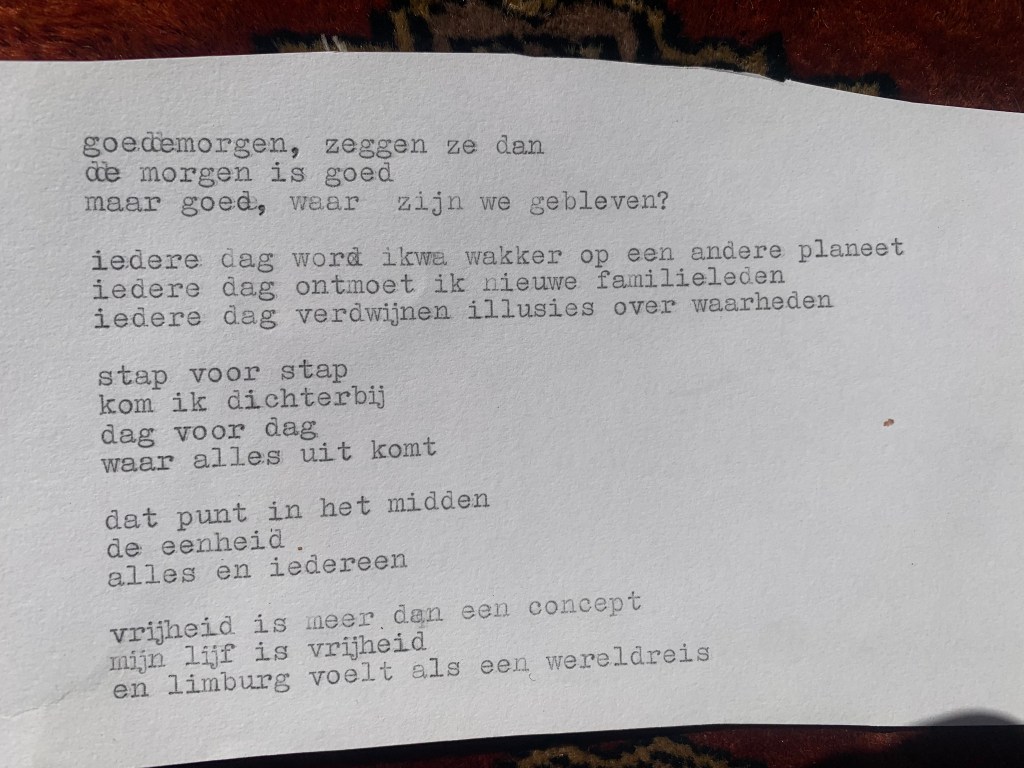 goedemorgen, zeggen ze dan
de morgen is goed
maar goed, waar zijn we gebleven?
iedere dag word ikwa wakker op een andere planeet
iedere dag ontmoet ik nieuwe familieleden
iedere dag verdwijnen illusies over waarheden
stap voor stap
kom ik dichterbij
dag voor dag
waar alles uit komt
dat punt in het midden
de eenheid .
alles en iedereen
vrijheid is meer dan een concept
mijn lijf is vrijheid
en limburg voelt als een wereldreis